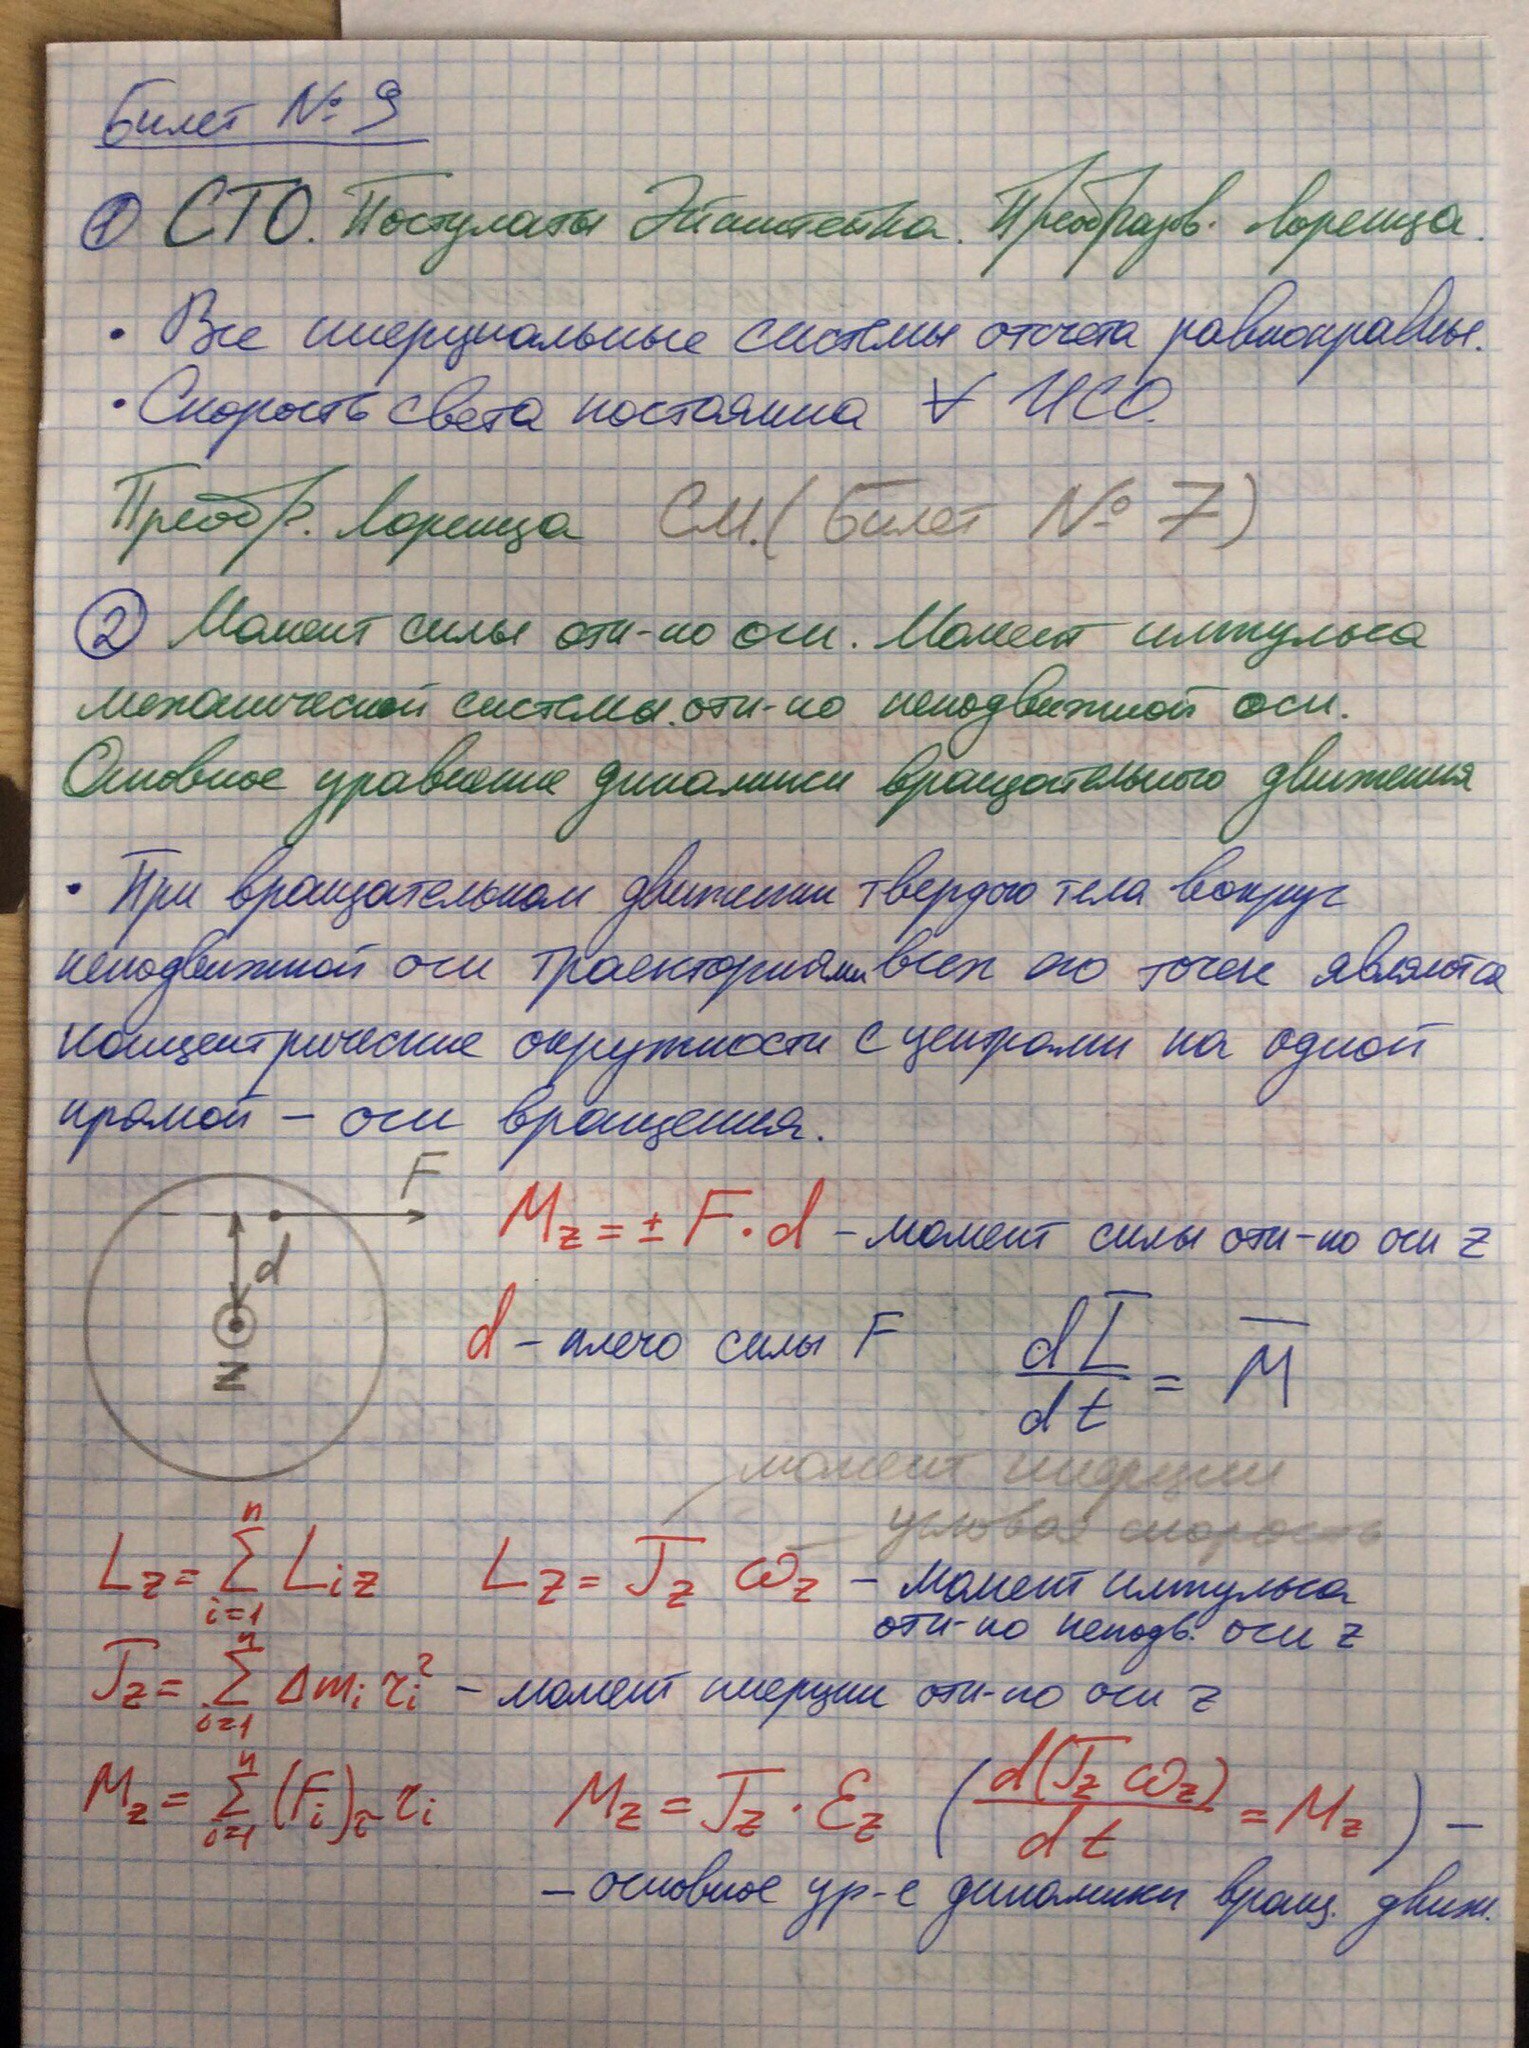 Билет № 9
① СТО. Постулаты Эйнштейна. Преобразов. Лоренца.
• Все инерциальные системы отсчета равноправны.
• Скорость света постоянна ∀ ИСО.
Преобр. Лоренца см. (Билет № 7)
② Момент силы отн-но оси. Момент импульса
механической системы отн-но неподвижной оси.
Основное уравнение динамики вращательного движения
• При вращательном движении твердого тела вокруг
неподвижной оси траекториями всех его точек являются
концентрические окружности с центрами на одной
прямой – оси вращения.
F
d
z
M_z = ± F · d – момент силы отн-но оси z
d – плечо силы F
dL̅/dt = M̅
момент инерции
угловая скорость
L_z = ∑_{i=1}^{n} L_{iz} L_z = J_z ω_z – момент импульса
отн-но неподв. оси z
J_z = ∑_{i=1}^{n} Δm_i r_i² – момент инерции отн-но оси z
M_z = ∑_{i=1}^{n} (F_i)_τ r_i M_z = J_z · ε_z (d(J_z ω_z)/dt = M_z) –
– основное ур-е динамики вращ. движ.